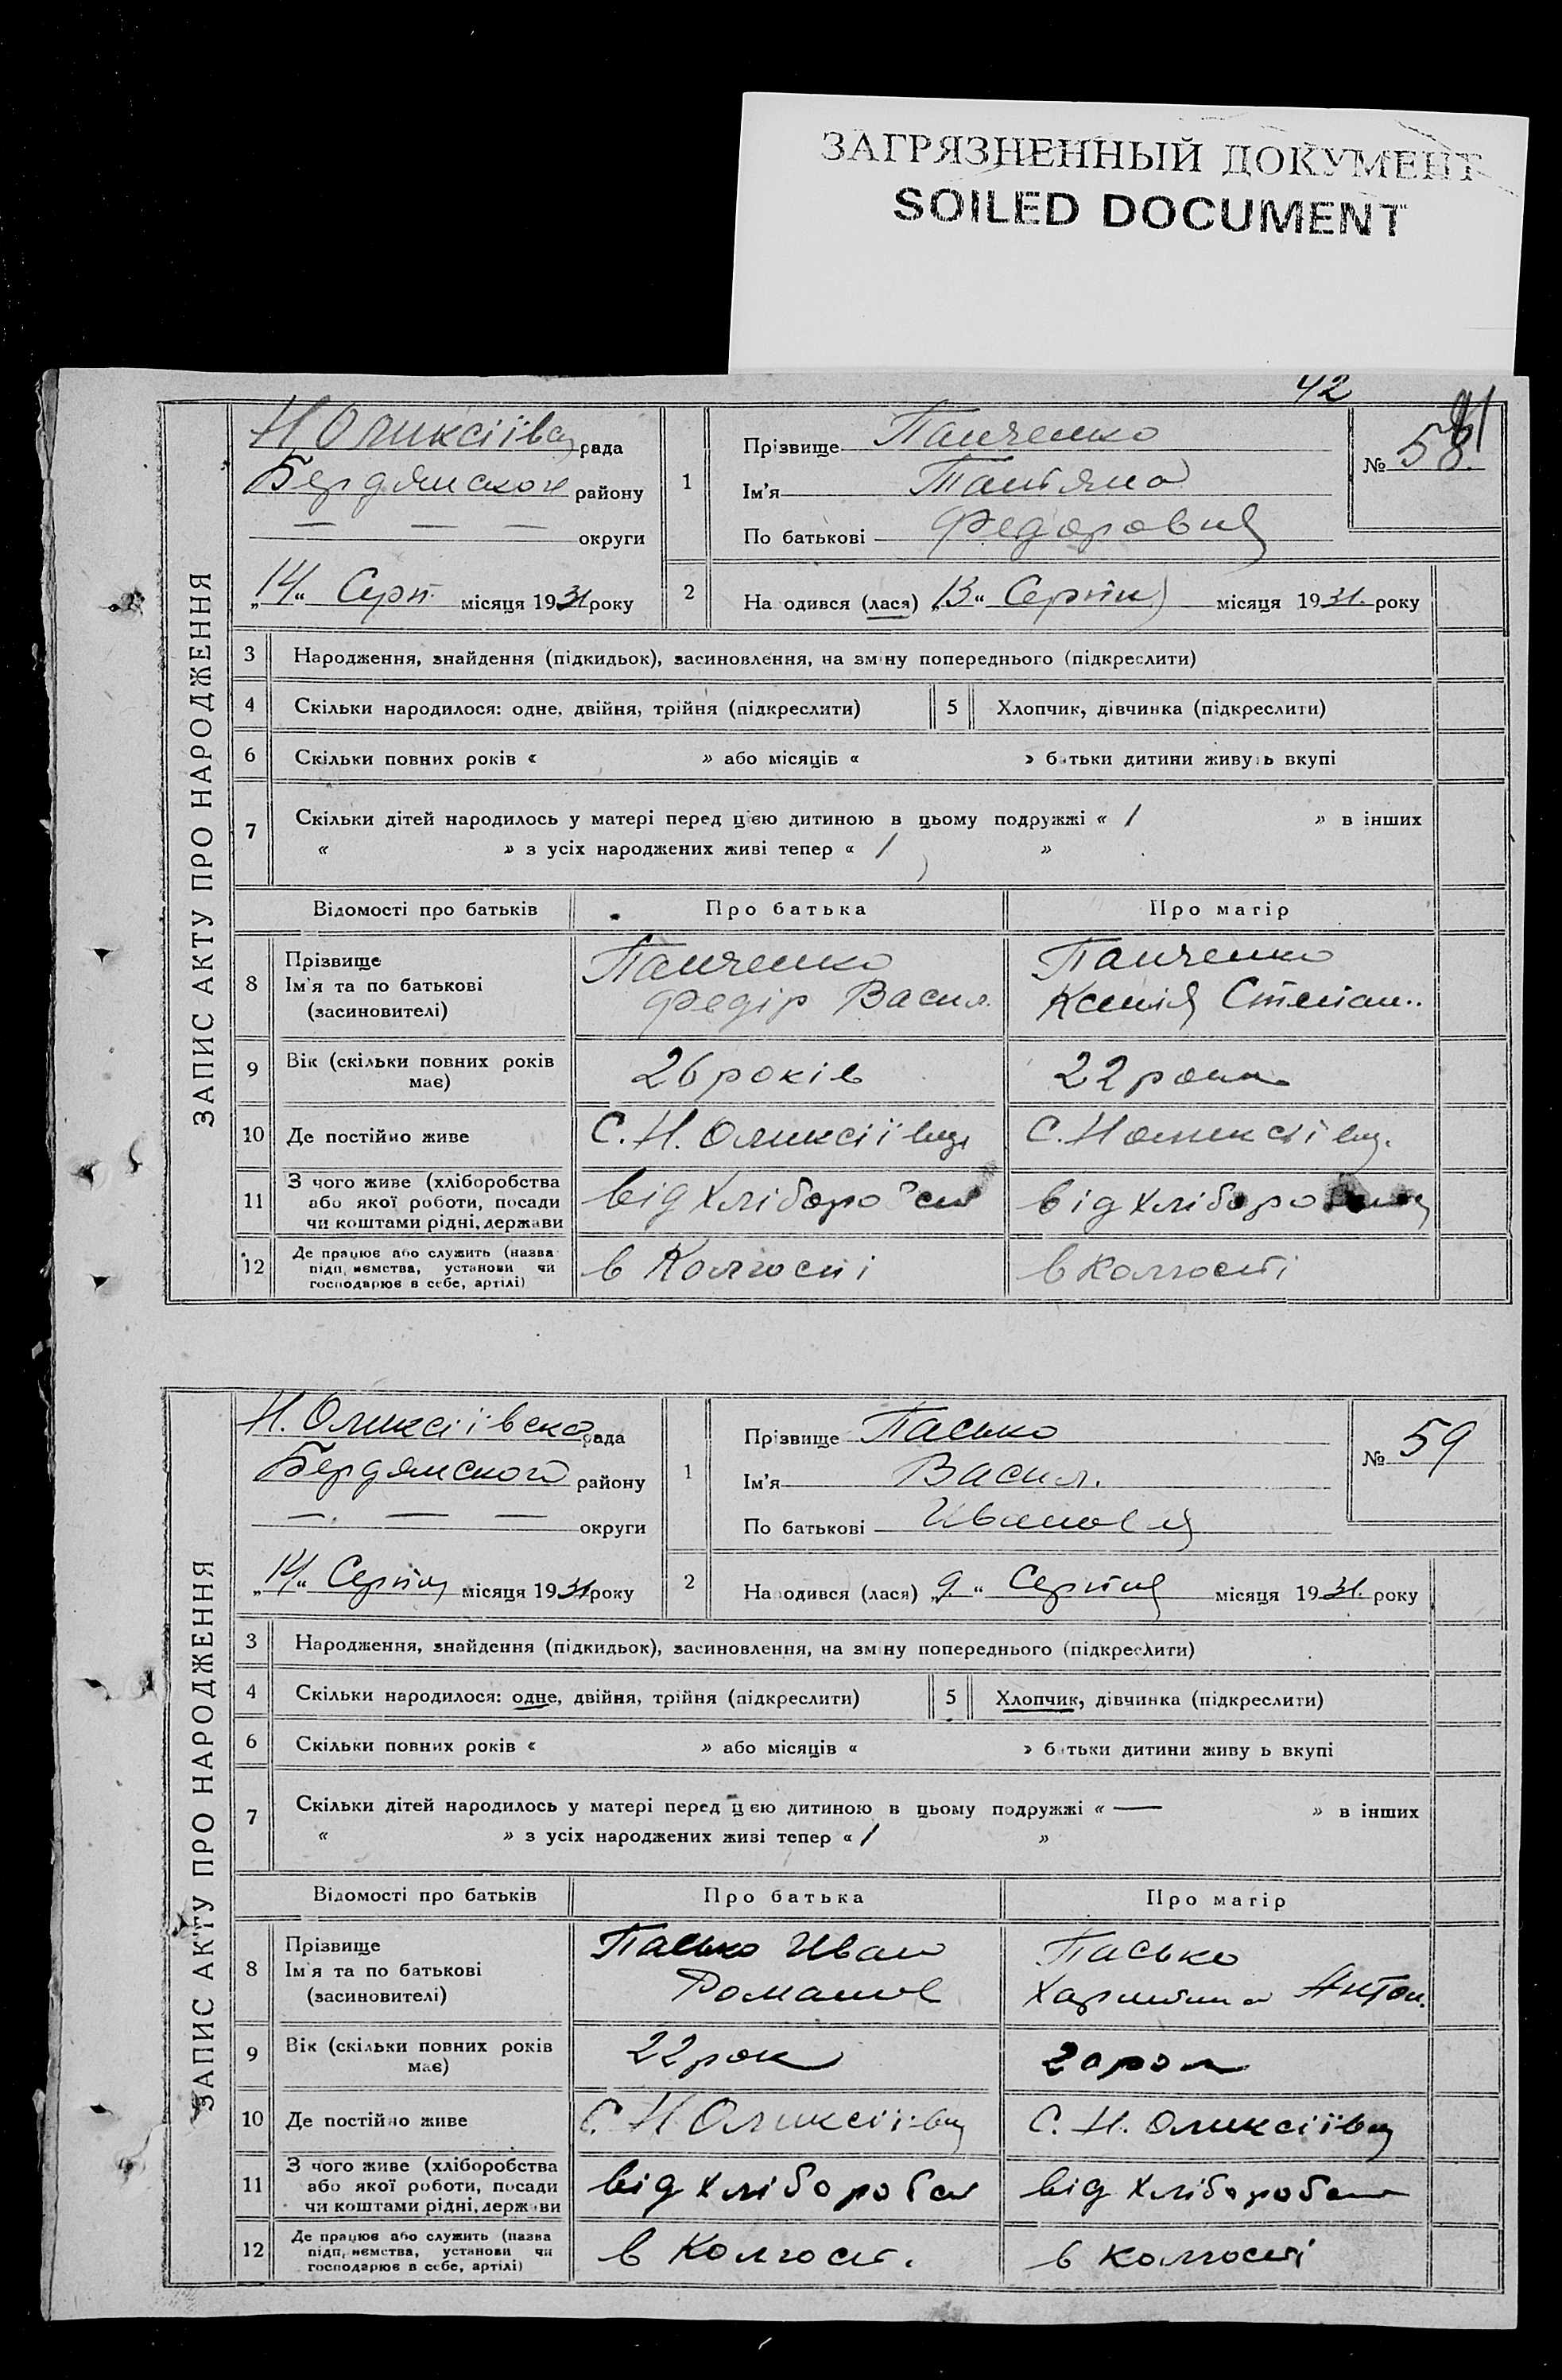 ЗАГРЯЗНЕННЫЙ ДОКУМЕНТ
SOILED DOCUMENT
42
ЗАПИС АКТУ ПРО НАРОДЖЕННЯ
Н Оликсіївск рада
Бердянского району
— — — округи
„14“ Серп. місяця 1931 року
1
Прізвище Панченко
Ім'я Татьяна
По батькові Федоровна
№ 58.
2
На одився (лася) „13“ Серпня місяця 1931. року
3 Народження, знайдення (підкидьок), засиновлення, на зміну попереднього (підкреслити)
4 Скільки народилося: одне, двійня, трійня (підкреслити) 5 Хлопчик, дівчинка (підкреслити)
6 Скільки повних років « » або місяців « » батьки дитини живуть вкупі
7 Скільки дітей народилось у матері перед цією дитиною в цьому подружжі « 1 » в інших
« » з усіх народжених живі тепер « 1 »
Відомості про батьків Про батька Про матір
8 Прізвище
Ім'я та по батькові
(засиновителі)
Панченко
Федір Васил.
Панченко
Ксенія Степан..
9 Вік (скільки повних років
має)
26 років
22 роки
10 Де постійно живе С. Н. Оликсіївці С. Н Оликсіївц.
11 З чого живе (хліборобства
або якої роботи, посади
чи коштами рідні, держави
від хліборобст
від хліборо
12 Де працює або служить (назва
підприємства, установи чи
господарює в себе, артілі)
в Колгоспі
в Колгоспі
ЗАПИС АКТУ ПРО НАРОДЖЕННЯ
Н. Оликсіївска рада
Бердянского району
— — — округи
„14“ Серпня місяця 1931 року
1
Прізвище Пасько
Ім'я Васил.
По батькові Иванов
№ 59
2
На одився (лася) „9.“ Серпня місяця 1931. року
3 Народження, знайдення (підкидьок), засиновлення, на зміну попереднього (підкреслити)
4 Скільки народилося: одне, двійня, трійня (підкреслити) 5 Хлопчик, дівчинка (підкреслити)
6 Скільки повних років « » або місяців « » батьки дитини живу ь вкупі
7 Скільки дітей народилось у матері перед цією дитиною в цьому подружжі « — » в інших
« » з усіх народжених живі тепер « 1 »
Відомості про батьків Про батька Про матір
8 Прізвище
Ім'я та по батькові
(засиновителі)
Пасько Иван
Романов
Пасько
Харитина Антон.
9 Вік (скільки повних років
має)
22 рок
20 рок
10 Де постійно живе С. Н Оликсіївці С. Н. Оликсіївці
11 З чого живе (хліборобства
або якої роботи, посади
чи коштами рідні, держави
від хліборобст
від хліборобст
12 Де працює або служить (назва
підприємства, установи чи
господарює в себе, артілі)
в Колгосп.
в колгоспі